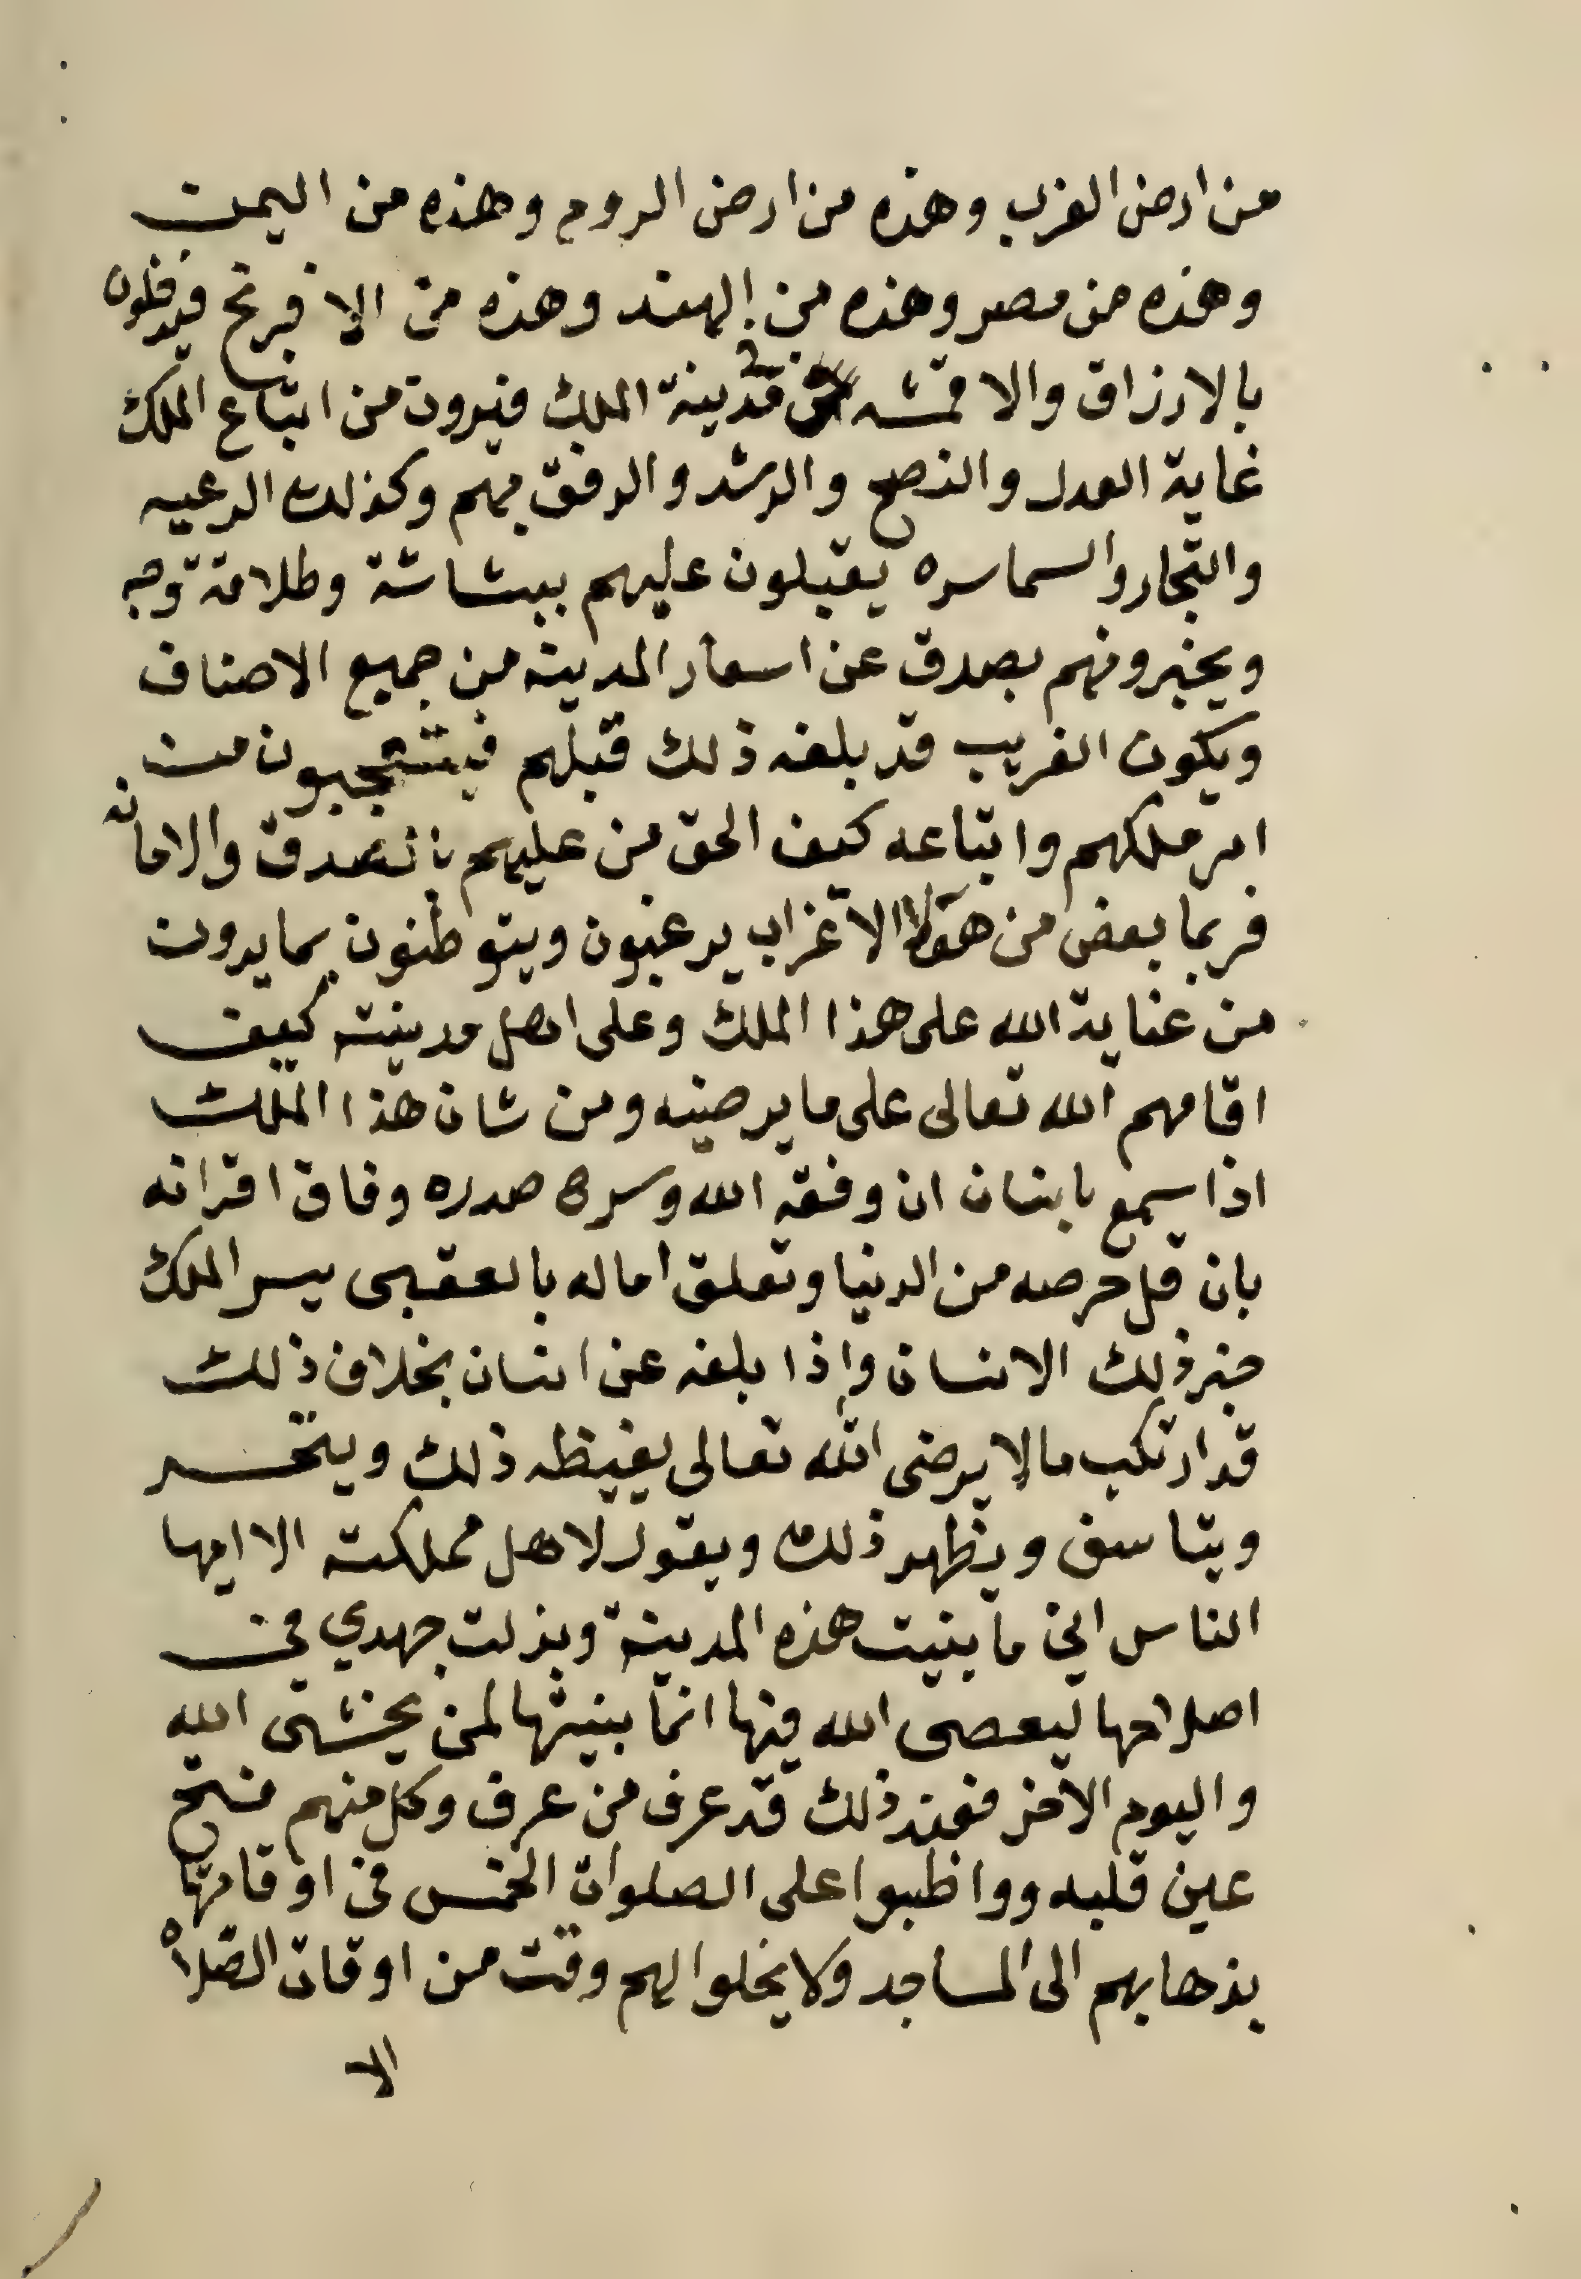 من ارض الغرب وهذه من ارض الروم وهذه من اليمن
وهذه من مصر وهذه من الهند وهذه من الافرنج فيدخلون
بالارزاق والاقمشه مدينة الملك فيرون من اتباع الملك
غاية العدل والنصح والرشد والرفق بهم وكذلك الرعيه
والتجار والسماسره يقبلون عليهم ببشاشة وطلاقة وجه
ويخبرونهم بصدق عن اسعار المدينه من جميع الاصناف
ويكون الغريب قد بلغه ذلك قبلهم فيتعجبون من
امر ملكهم واتباعه كيف الحق من عليهم بالصدق والامانه
فربما بعض من هولاء الاغراب يرغبون ويتوطنون بما يرون
من عناية الله على هذا الملك وعلى اهل مدينته كيف
اقامهم الله تعالى على ما يرضيه ومن شان هذا الملك
اذا سمع بانسان ان وفقه الله وسرح صدره وفاق اقرانه
بان قل حرصه من الدنيا وتعلق اماله بالعقبى يسر الملك
خبر ذلك الانسان واذا بلغه عن انسان بخلاف ذلك
قد ارتكب مالا يرضى الله تعالى يغيظه ذلك ويتحسر
ويتاسف ويظهر ذلك ويقول لاهل مملكته الا ايها
الناس اني ما بنيت هذه المدينة وبذلت جهدي في
اصلاحها ليعصى الله فيها انما بنيتها لمن يخشى الله
واليوم الاخر فعند ذلك قد عرف من عرف وكل منهم فتح
عين قلبه وواظبوا على الصلوات الخمس في اوقاتها
بذهابهم الى المساجد ولا يخلوا لهم وقت من اوقات الصلاه
الا